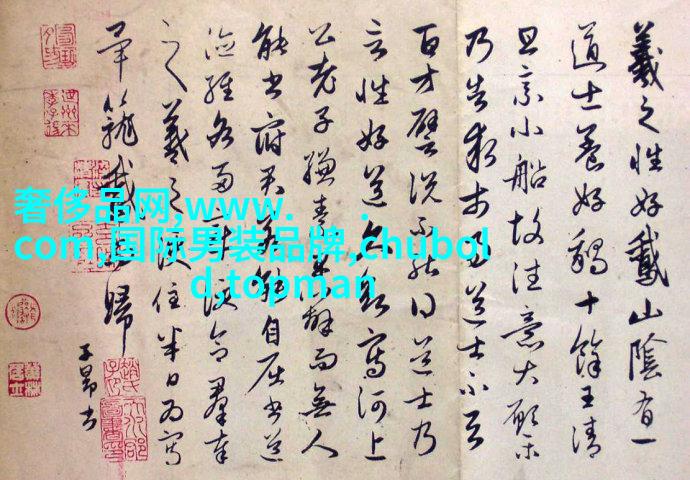 羲之性好鵞山陰有一
道士養好鵝十餘王清
旦乘小船故往意大願樂
乃告求市易道士不与
百方譬說不能得道士乃
言性好道久欲寫河上
公老子縑素早辦而無人
能書府君若能自屈書道
德經各兩章便合羣奉
羲之便住半日為寫
畢籠鵝 歸
子昂書
奢侈品网,www. .
com,国际男装品牌,chubol
d,topman